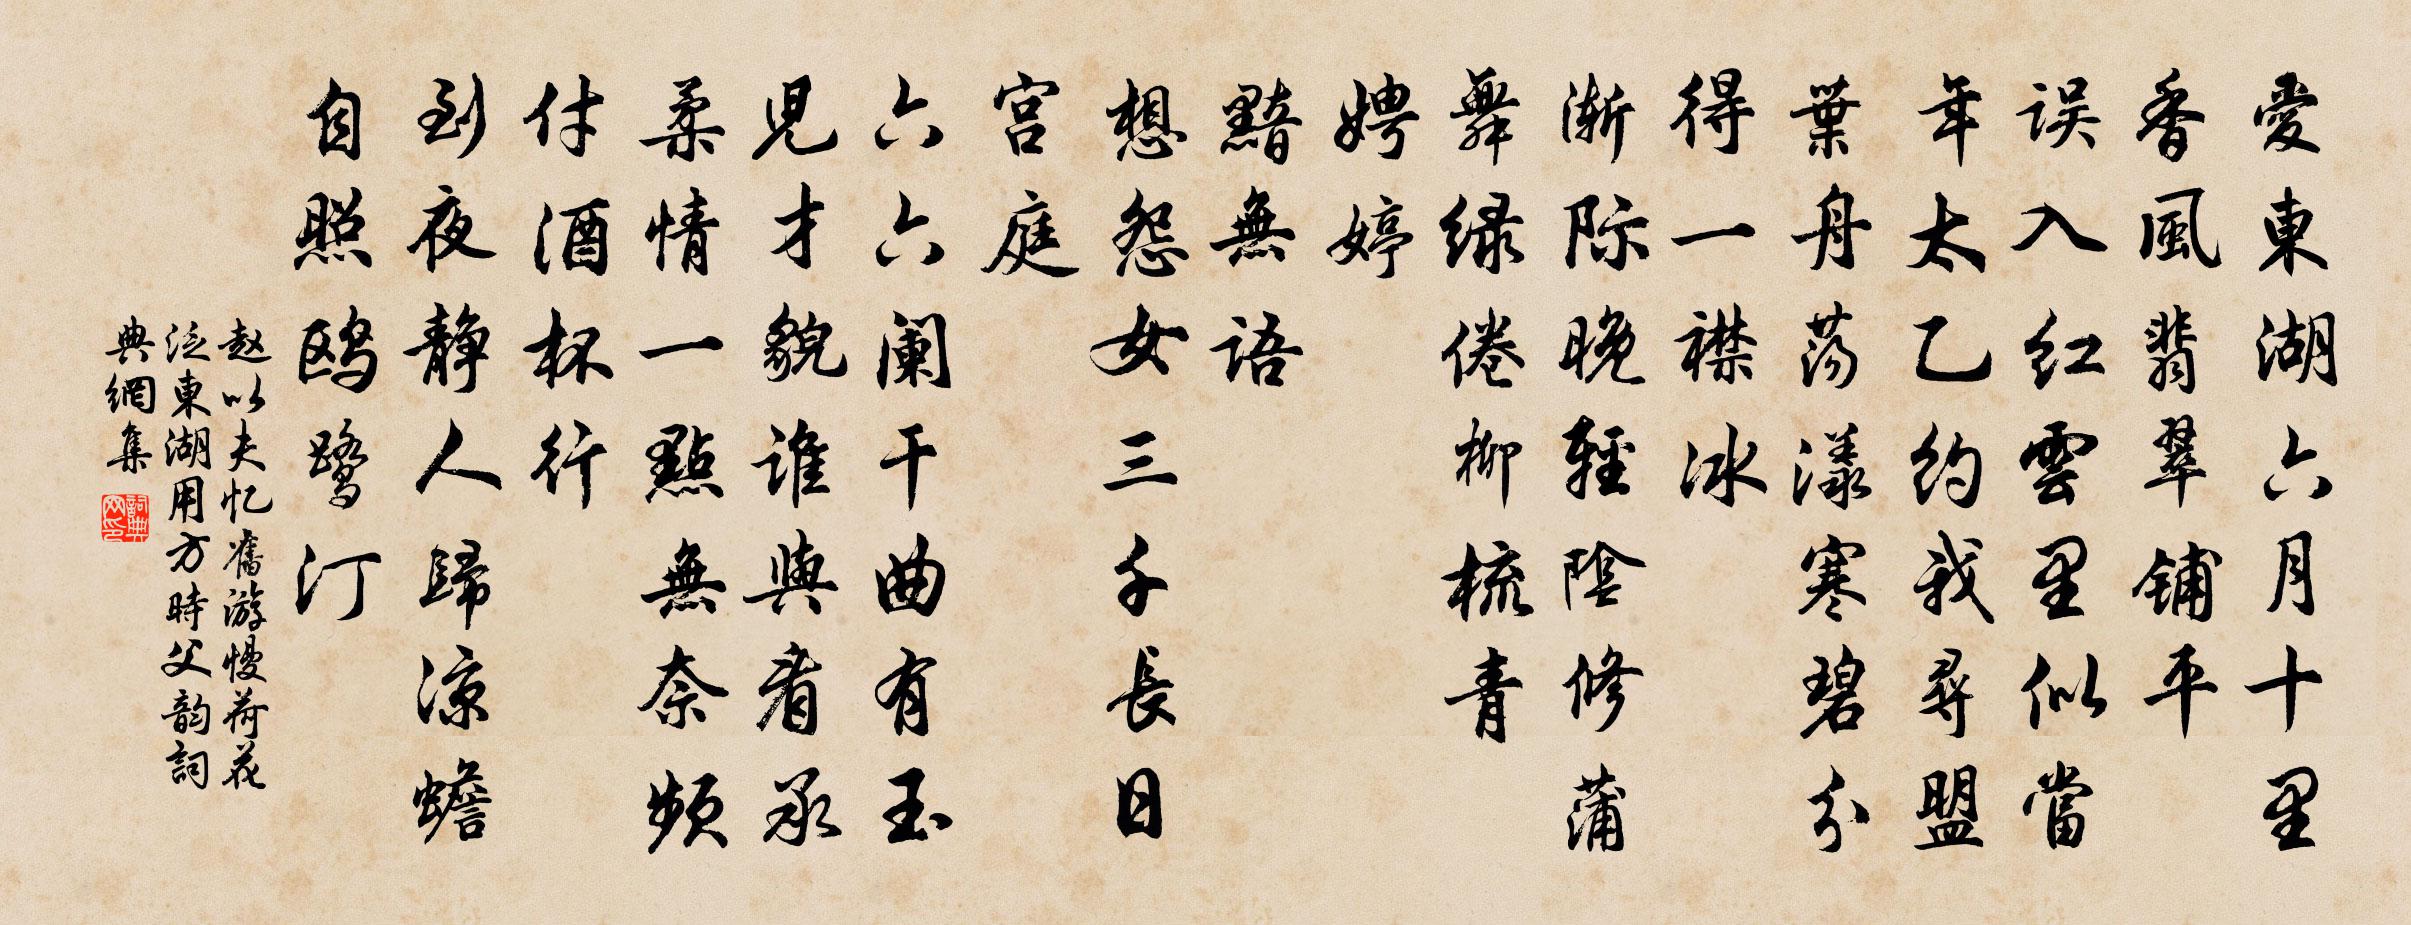 愛東湖六月十里
香風翡翠鋪平
误入红雲里似當
年太乙約我尋盟
葉舟荡漾寒碧分
得一襟冰
渐际晚輕陰修蒲
舞绿倦柳梳青
娉婷
黯無语
想怨女三千長日
宫庭
六六阑干曲有玉
児才貌谁與看承
柔情一點無奈频
付酒杯行
到夜静人歸凉蟾
自照鸥鹭汀
赵以夫忆舊游慢荷花
泛東湖用方時父韵詞
典網集
詞典网印